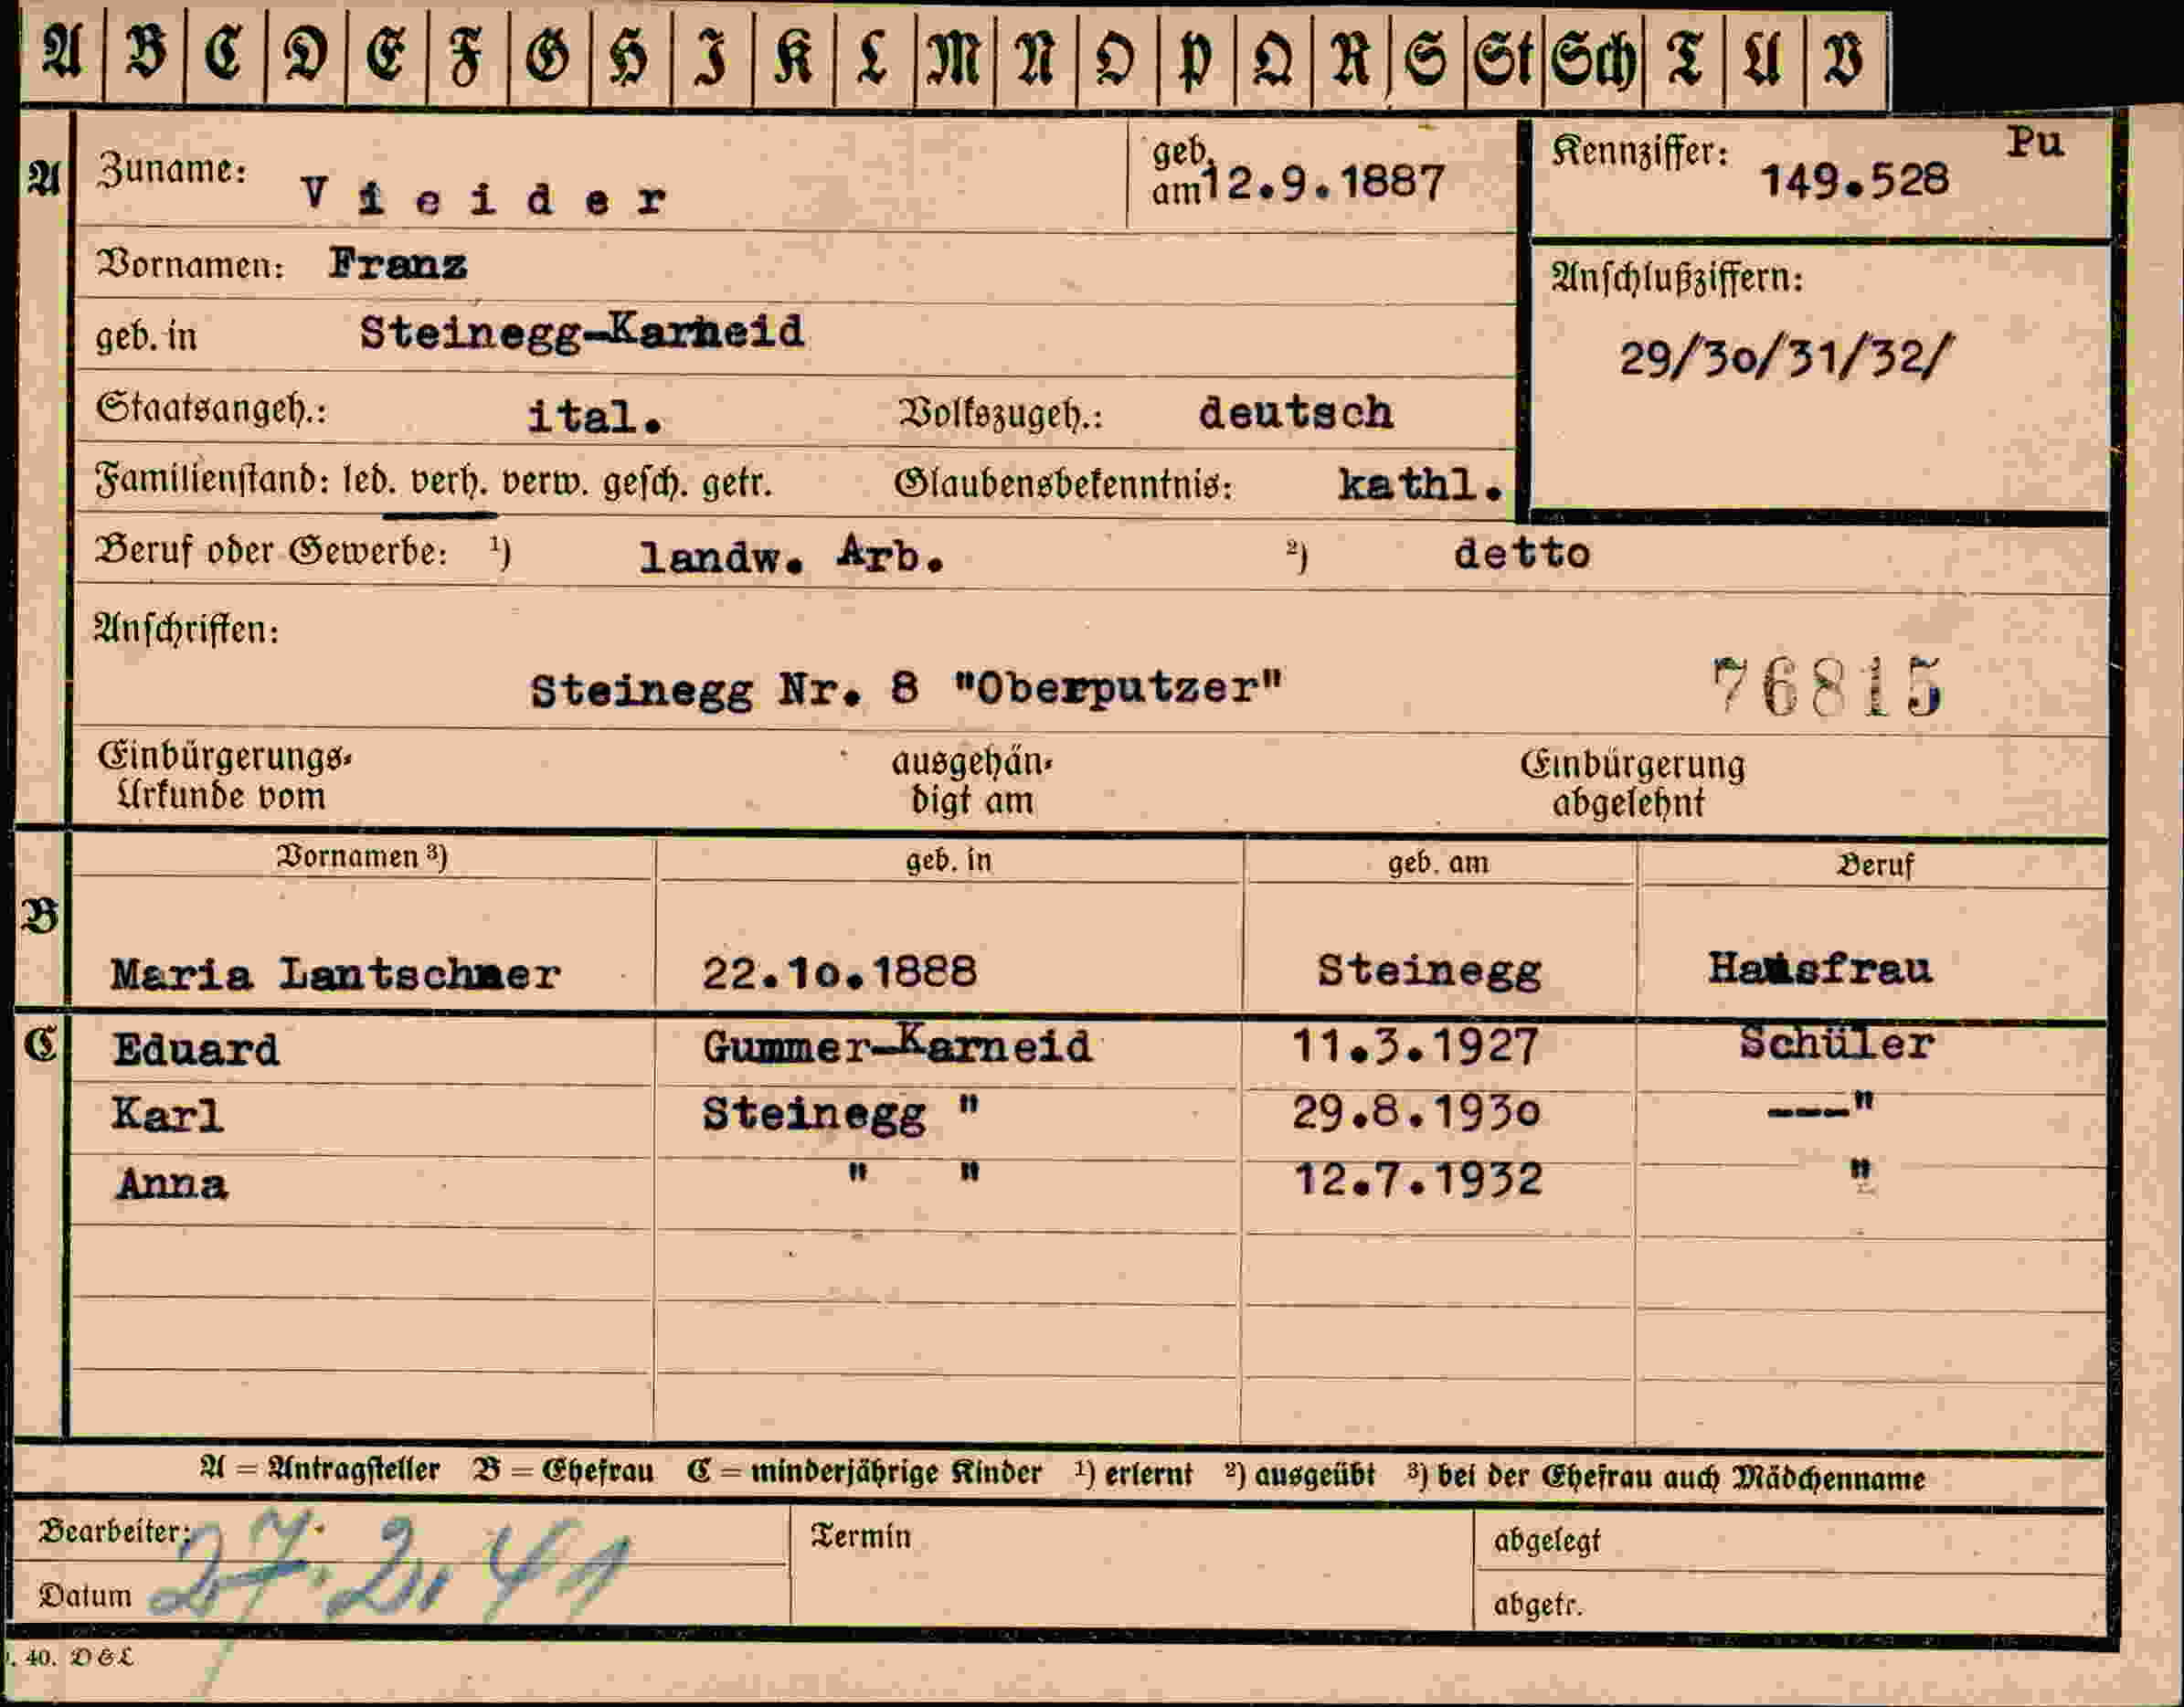 A B C D E F G H I K L M N O P Q R S St Sch T U V
A Zuname: Vieider geb. am 12.9.1887 Kennziffer: 149.528 Pu
Vornamen: Franz
Anschlußziffern:
geb. in Steinegg-Karneid
29/30/31/32/
Staatsangeh.: ital. Volkszugeh.: deutsch
Familienstand: led. verh. verw. gesch. getr. Glaubensbekenntnis: kathl.
Beruf oder Gewerbe: 1) landw. Arb. 2) detto
Anschriften:
Steinegg Nr. 8 "Oberputzer" 76815
Einbürgerungs- ausgehän- Einbürgerung
Urkunde vom digt am abgelehnt
Vornamen 3) geb. in geb. am Beruf
B
Maria Lantschner 22.10.1888 Steinegg Hausfrau
C Eduard Gummer-Karneid 11.3.1927 Schüler
Karl Steinegg " 29.8.1930 ---"
Anna " " 12.7.1932 "
A = Antragsteller B = Ehefrau C = minderjährige Kinder 1) erlernt 2) ausgeübt 3) bei der Ehefrau auch Mädchenname
Bearbeiter: Termin abgelegt
27.2.41
Datum abgetr.
. 40. D & L